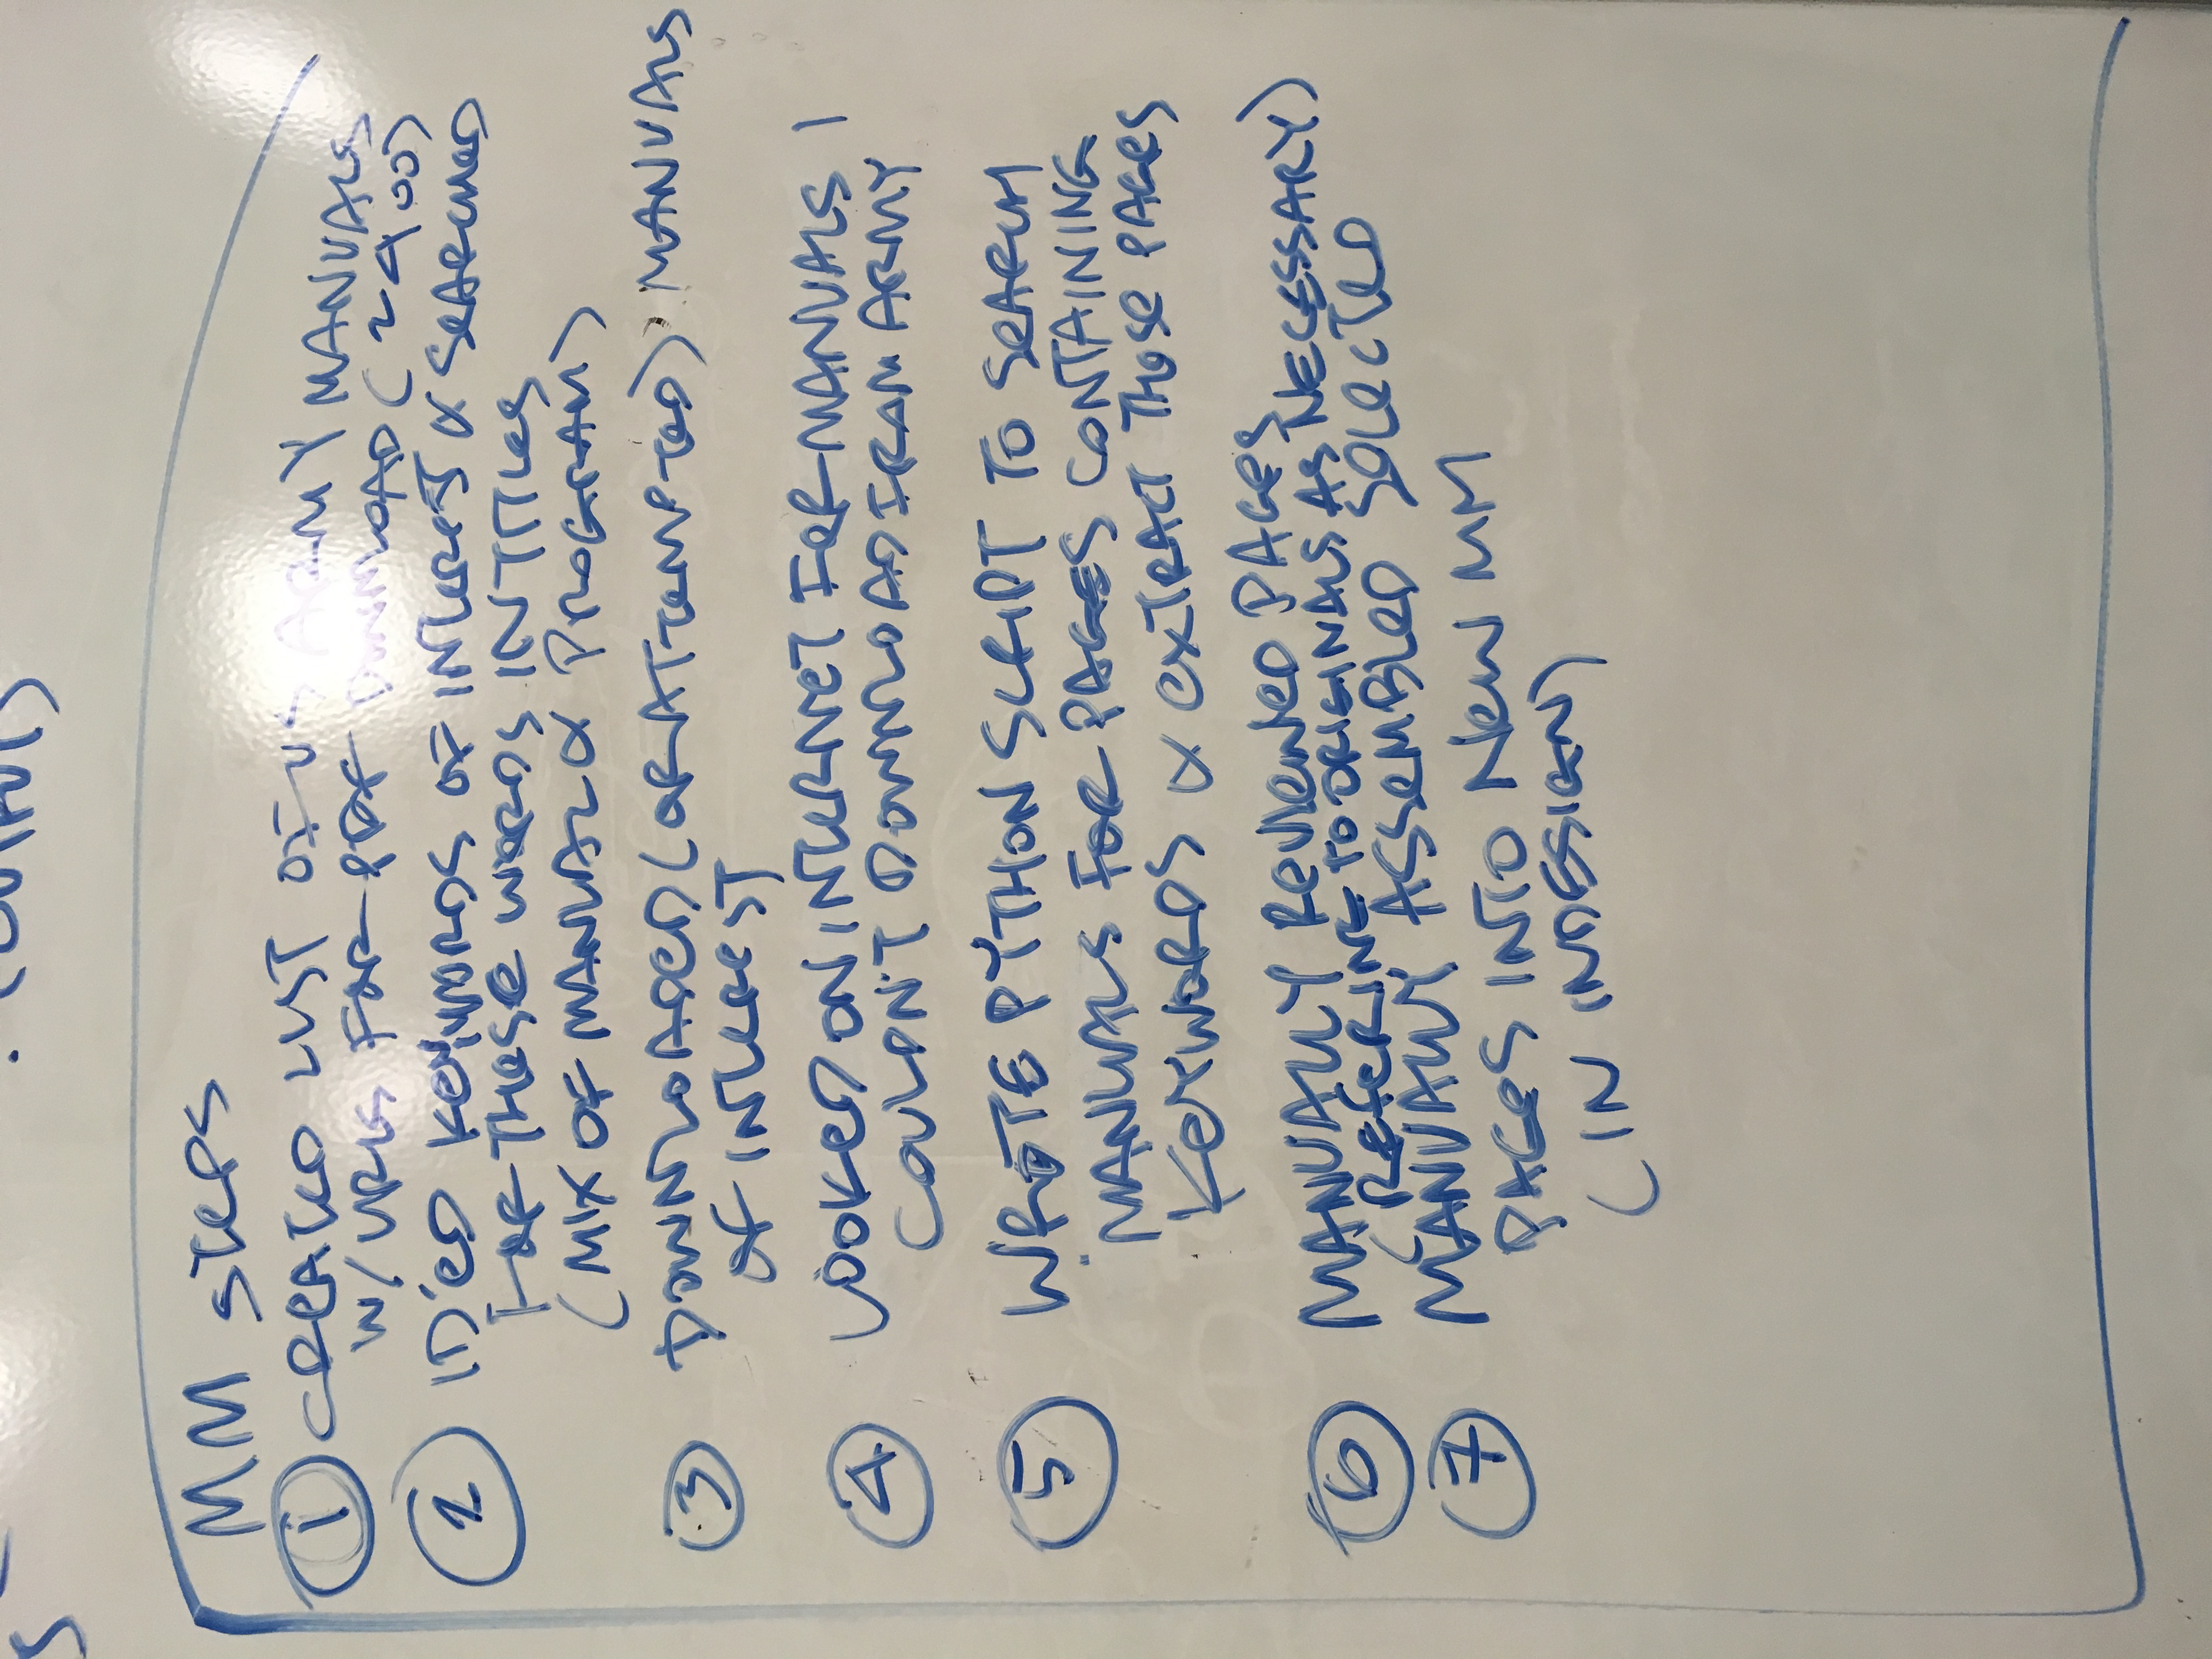 (OUTPUT)
MM STEPS
1 CREATED LIST OF US ARMY MANUALS
W/ URLS FOR PDF DOWNLOAD (~400)
2 ID'ED KEYWORDS OF INTEREST & SEARCHED
FOR THOSE WORDS IN TITLES
(MIX OF MANUAL & PROGRAM)
3 DOWNLOADED (OR ATTEMPTED) MANUALS
OF INTEREST
4 LOOKED ON INTERNET FOR MANUALS I
COULDN'T DOWNLOAD FROM ARMY
5 WROTE PYTHON SCRIPT TO SEARCH
MANUALS FOR PAGES CONTAINING
KEYWORDS & EXTRACT THOSE PAGES
6 MANUALLY REVIEWED PAGES
(REFERING TO ORIGINALS AS NECESSARY)
7 MANUALLY ASSEMBLED SELECTED
PAGES INTO NEW MM
(IN INDESIGN)